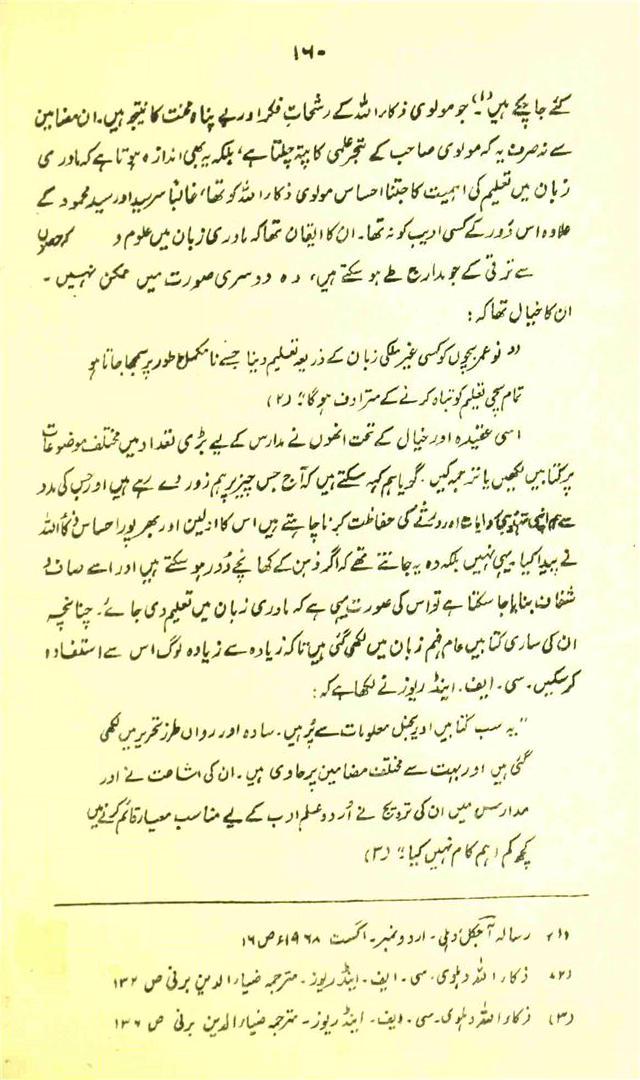 ۱۶۰
کئے جا چکے ہیں (۱)۔ جو مولوی ذکاء اللہ کے رشحاتِ فکر اور بے پناہ محنت کا نتیجہ ہیں۔ ان مضامین
سے نہ صرف یہ کہ مولوی صاحب کے تبحرِ علمی کا پتہ چلتا ہے، بلکہ یہ بھی اندازہ ہوتا ہے کہ مادری
زبان میں تعلیم کی اہمیت کا جتنا احساس مولوی ذکاء اللہ کو تھا، غالباً سرسید اور سید محمود کے
علاوہ اس دور کے کسی ادیب کو نہ تھا۔ ان کا ایقان تھا کہ مادری زبان میں علوم و
سے ترقی کے جو مدارج طے ہو سکتے ہیں، وہ دوسری صورت میں ممکن نہیں۔
ان کا خیال تھا کہ:
"نوعمر بچوں کو کسی غیر ملکی زبان کے ذریعہ تعلیم دینا جسے نامکمل طور پر سمجھا جاتا ہو
تمام سچی تعلیم کو تباہ کرنے کے مترادف ہوگا"؛ (۲)
اسی عقیدہ اور خیال کے تحت انھوں نے مدارس کے لیے بڑی تعداد میں مختلف موضوعات
پر کتابیں لکھیں یا ترجمہ کیں۔ گویا ہم کہہ سکتے ہیں کہ آج جس چیز پر ہم زور دے رہے ہیں اور جس کی مدد
سے ہم اپنی تہذیبی روایات اور ورثے کی حفاظت کرنا چاہتے ہیں اس کا اولین اور بھرپور احساس ذکاء اللہ
نے پیدا کیا یہی نہیں بلکہ وہ یہ جانتے تھے کہ اگر ذہن کے کھانچے دُور ہو سکتے ہیں اور اسے صاف و
شفاف بنایا جا سکتا ہے تو اس کی صورت یہی ہے کہ مادری زبان میں تعلیم دی جائے۔ چنانچہ
ان کی ساری کتابیں عام فہم زبان میں لکھی گئی ہیں تاکہ زیادہ سے زیادہ لوگ اس سے استفادہ
کر سکیں۔ سی۔ ایف۔ اینڈ ریوز نے لکھا ہے کہ:
"یہ سب کتابیں اوریجنل معلومات سے پُر ہیں۔ سادہ اور رواں طرز تحریر میں لکھی
گئی ہیں اور بہت سے مختلف مضامین پر حاوی ہیں۔ ان کی اشاعت نے اور
مدارس میں ان کی ترویج نے اُردو علم ادب کے لیے مناسب معیار قائم کرنے میں
کچھ کم اہم کام نہیں کیا"؛ (۳)
(۱) رسالہ آجکل دہلی۔ اردو نمبر۔ اگست ۱۹۶۸ء ص ۱۶
(۲) ذکاء اللہ دہلوی۔ سی۔ ایف۔ اینڈ ریوز۔ مترجمہ ضیاء الدین برنی ص ۱۳۲
(۳) ذکاء اللہ دہلوی۔ سی۔ ایف۔ اینڈ ریوز۔ مترجمہ ضیاء الدین برنی ص ۱۳۶